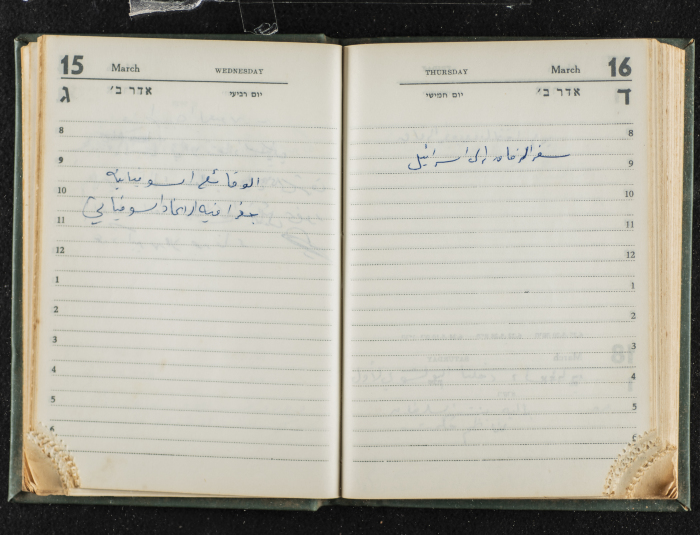 15 March WEDNESDAY
ג אדר ב׳ יום רביעי
8
9
الوقائع السوفياتية
10
جغرافية الاتحاد السوفياتي
11
12
1
2
3
4
5
6
THURSDAY March 16
יום חמישי אדר ב׳ ד
8
سفر الرفاق الى اسرائيل
9
10
11
12
1
2
3
4
5
6